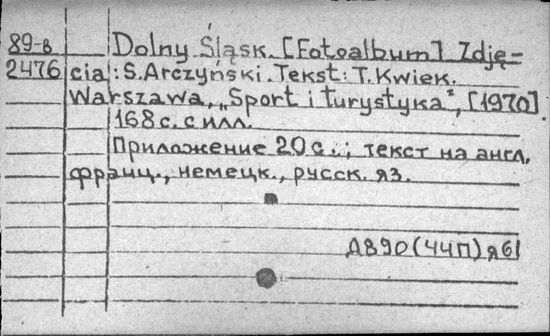 89-в Dolny Śląsk. [Fotoalbum] Zdję=
2476 cia: S. Arczyński. Tekst: T. Kwiek.
Warszawa, „Sport i turystyka", [1970].
168 с. с илл.
Приложение 20 с.; текст на англ.
франц., немецк., русск. яз.
Д890(4ЧП)я61